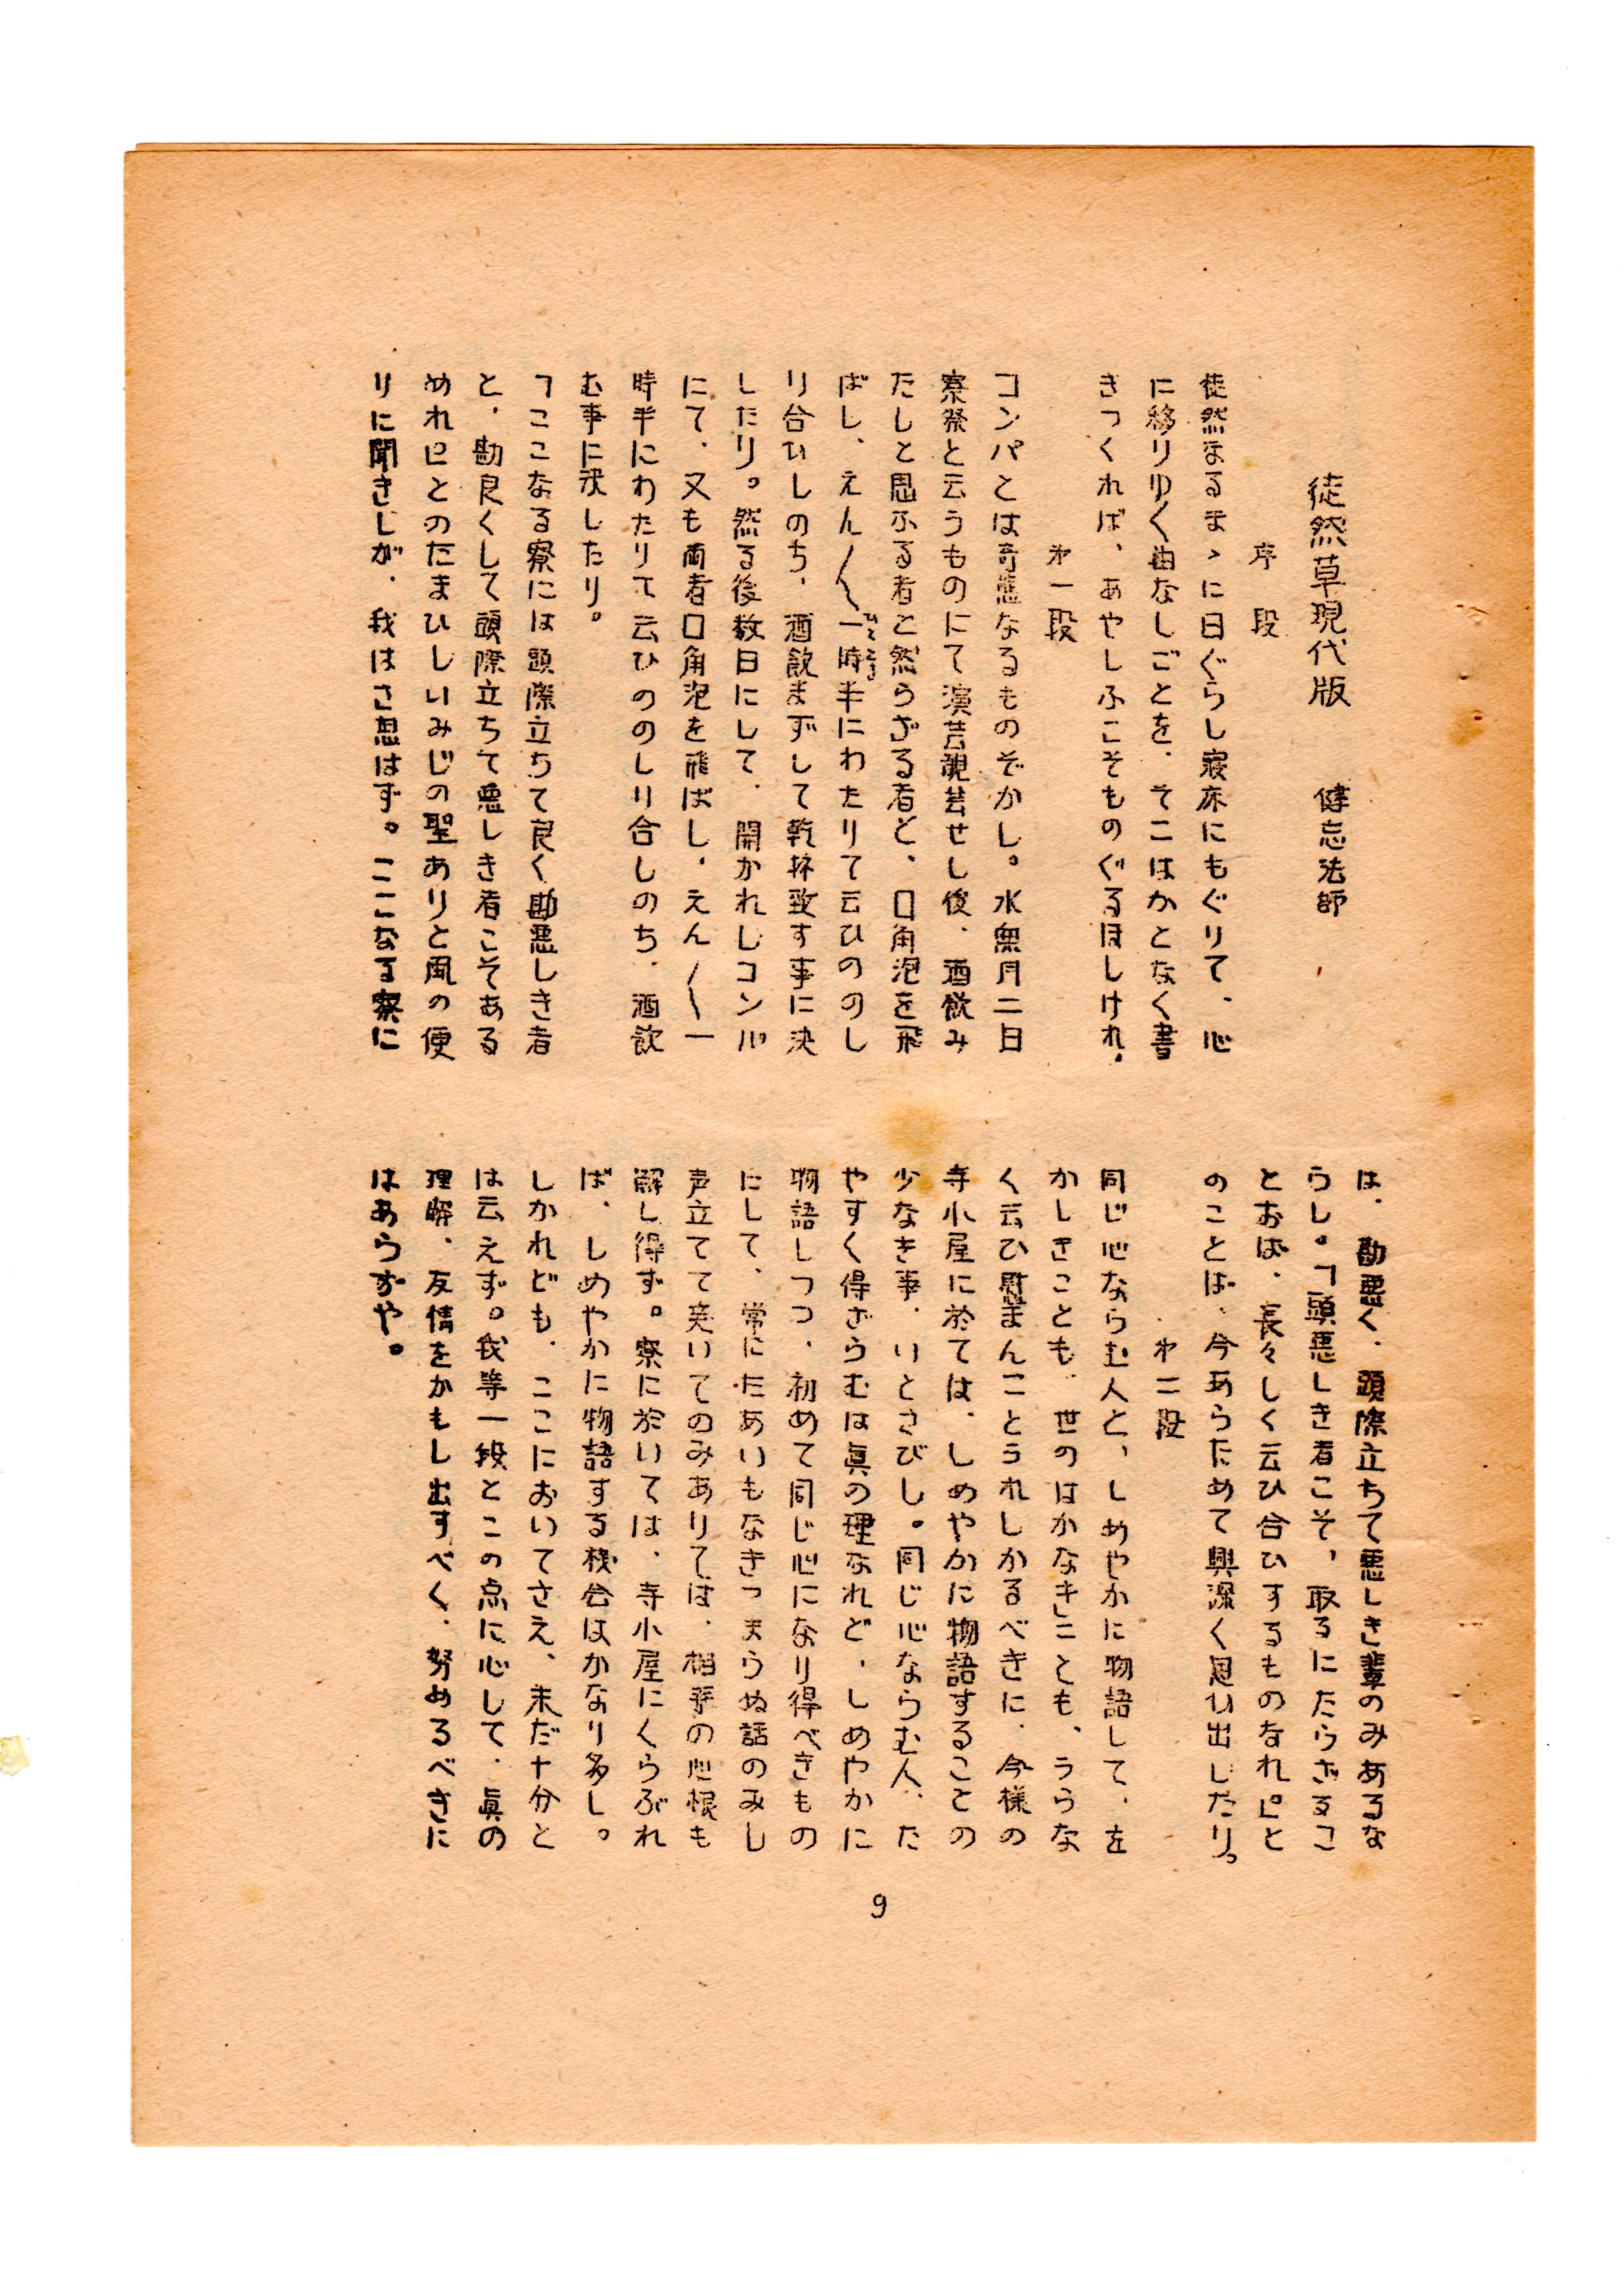 徒然草現代版　　健忘法師
序　段
徒然なるまゝに日ぐらし寝床にもぐりて、心
に移りゆく由なしごとを、そこはかとなく書
きつくれば、あやしふこそものぐるほしけれ。
才一段
コンパとは奇態なるものぞかし。水無月二日
寮祭と云うものにて演芸観芸せし後、酒飲み
たしと思ふる者と然らざる者と、口角泡を飛
ばし、えん〱一時半にわたりて云ひののし
り合ひしのち、酒飲まずして乾杯致す事に決
したり。然る後数日にして、開かれしコンパ
にて、又も両者口角泡を飛ばし、えん〱一
時半にわたりて云ひののしり合しのち、酒飲
む事に決したり。
「ここなる寮には頭際立ちて良く勘悪しき者
と、勘良くして頭際立ちて悪しき者こそある
めれ」とのたまひしいみじの聖ありと風の便
りに聞きしが、我はさ思はず。ここなる寮に
は、勘悪く、頭際立ちて悪しき輩のみあるな
らし。「頭悪しき者こそ、取るにたらざるこ
とおば、長々しく云ひ合ひするものなれ」と
のことば、今あらためて興深く思ひ出したり。
才二段
同じ心ならむ人と、しめやかに物語して、を
かしきことも、世のはかなきことも、うらな
く云ひ慰まんことうれしかるべきに、今様の
寺小屋に於ては、しめやかに物語することの
少なき事、いとさびし。同じ心ならむ人、た
やすく得ざらむは眞の理なれど、しめやかに
物語しつつ、初めて同じ心になり得べきもの
にして、常にたあいもなきつまらぬ話のみし
声立てて笑いてのみありては、相手の心根も
解し得ず。寮に於いては、寺小屋にくらぶれ
ば、しめやかに物語する機会はかなり多し。
しかれども、ここにおいてさえ、未だ十分と
は云えず。我等一段とこの点に心して、眞の
理解、友情をかもし出すべく、努めるべきに
はあらずや。
9